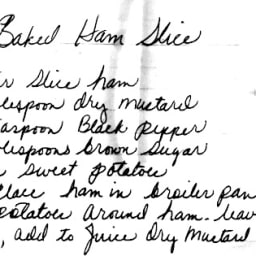 Baked Ham Slice
slice ham
dry mustard
Black pepper
brown sugar
sweet potatoes
Place ham in broiler pan
potatoes around ham.
, add to juice dry mustard